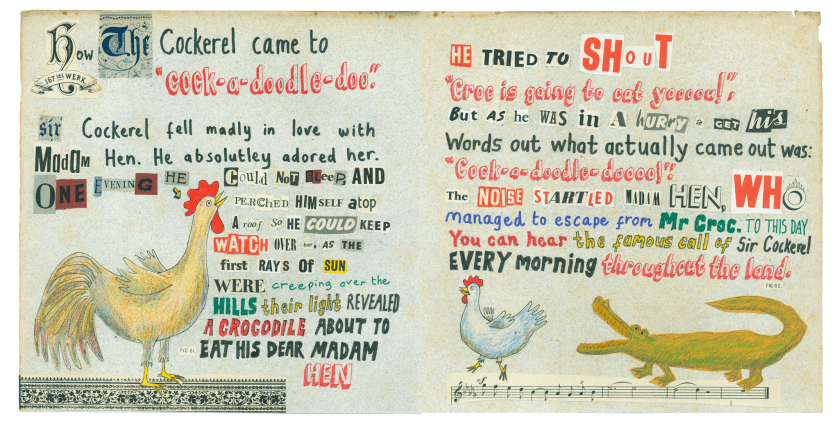 How The Cockerel came to
167 stes WERK
"Cock-a-doodle-doo."
Sir Cockerel fell madly in love with
Madam Hen. He absolutley adored her.
ONE EVENING HE Could Not SLeeP, AND
he
PERCHED HIMSELF atop
A roof So HE COULD KEEP
WATCH OVER her. AS THE
first RAYS OF SUN
WERE creeping over the
HILLS their light REVEALED
A CROCODILE ABOUT TO
EAT HIS DEAR MADAM
HEN
FIG 61.
HE TRIED TO SHOUT
"Croc is going to eat yooouu!";
But AS he WAS in A hURRy to GET his
Words out what actually came out was:
"Cock-a-doodle-doooo!";
The NOISE STARTLED MADAM HEN, WHO
managed to escape from Mr Croc. TO THIS DAY
You can hear the famous call of Sir Cockerel
EVERY morning throughout the land.
FIG 62.